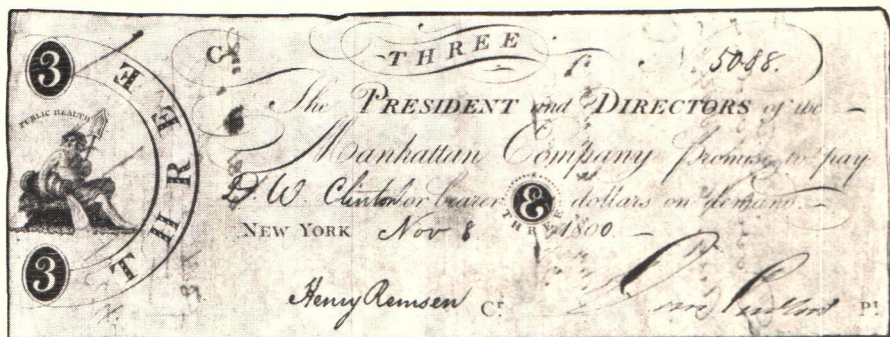 3
PUBLIC HEALTH
THREE
3
C THREE N. 5088.
The PRESIDENT and DIRECTORS of the
Manhattan Company promise to pay
D. W. Clinton or bearer 3 dollars on demand.
THREE
NEW YORK Nov 8 1800.
Henry Remsen Cr. Pt.